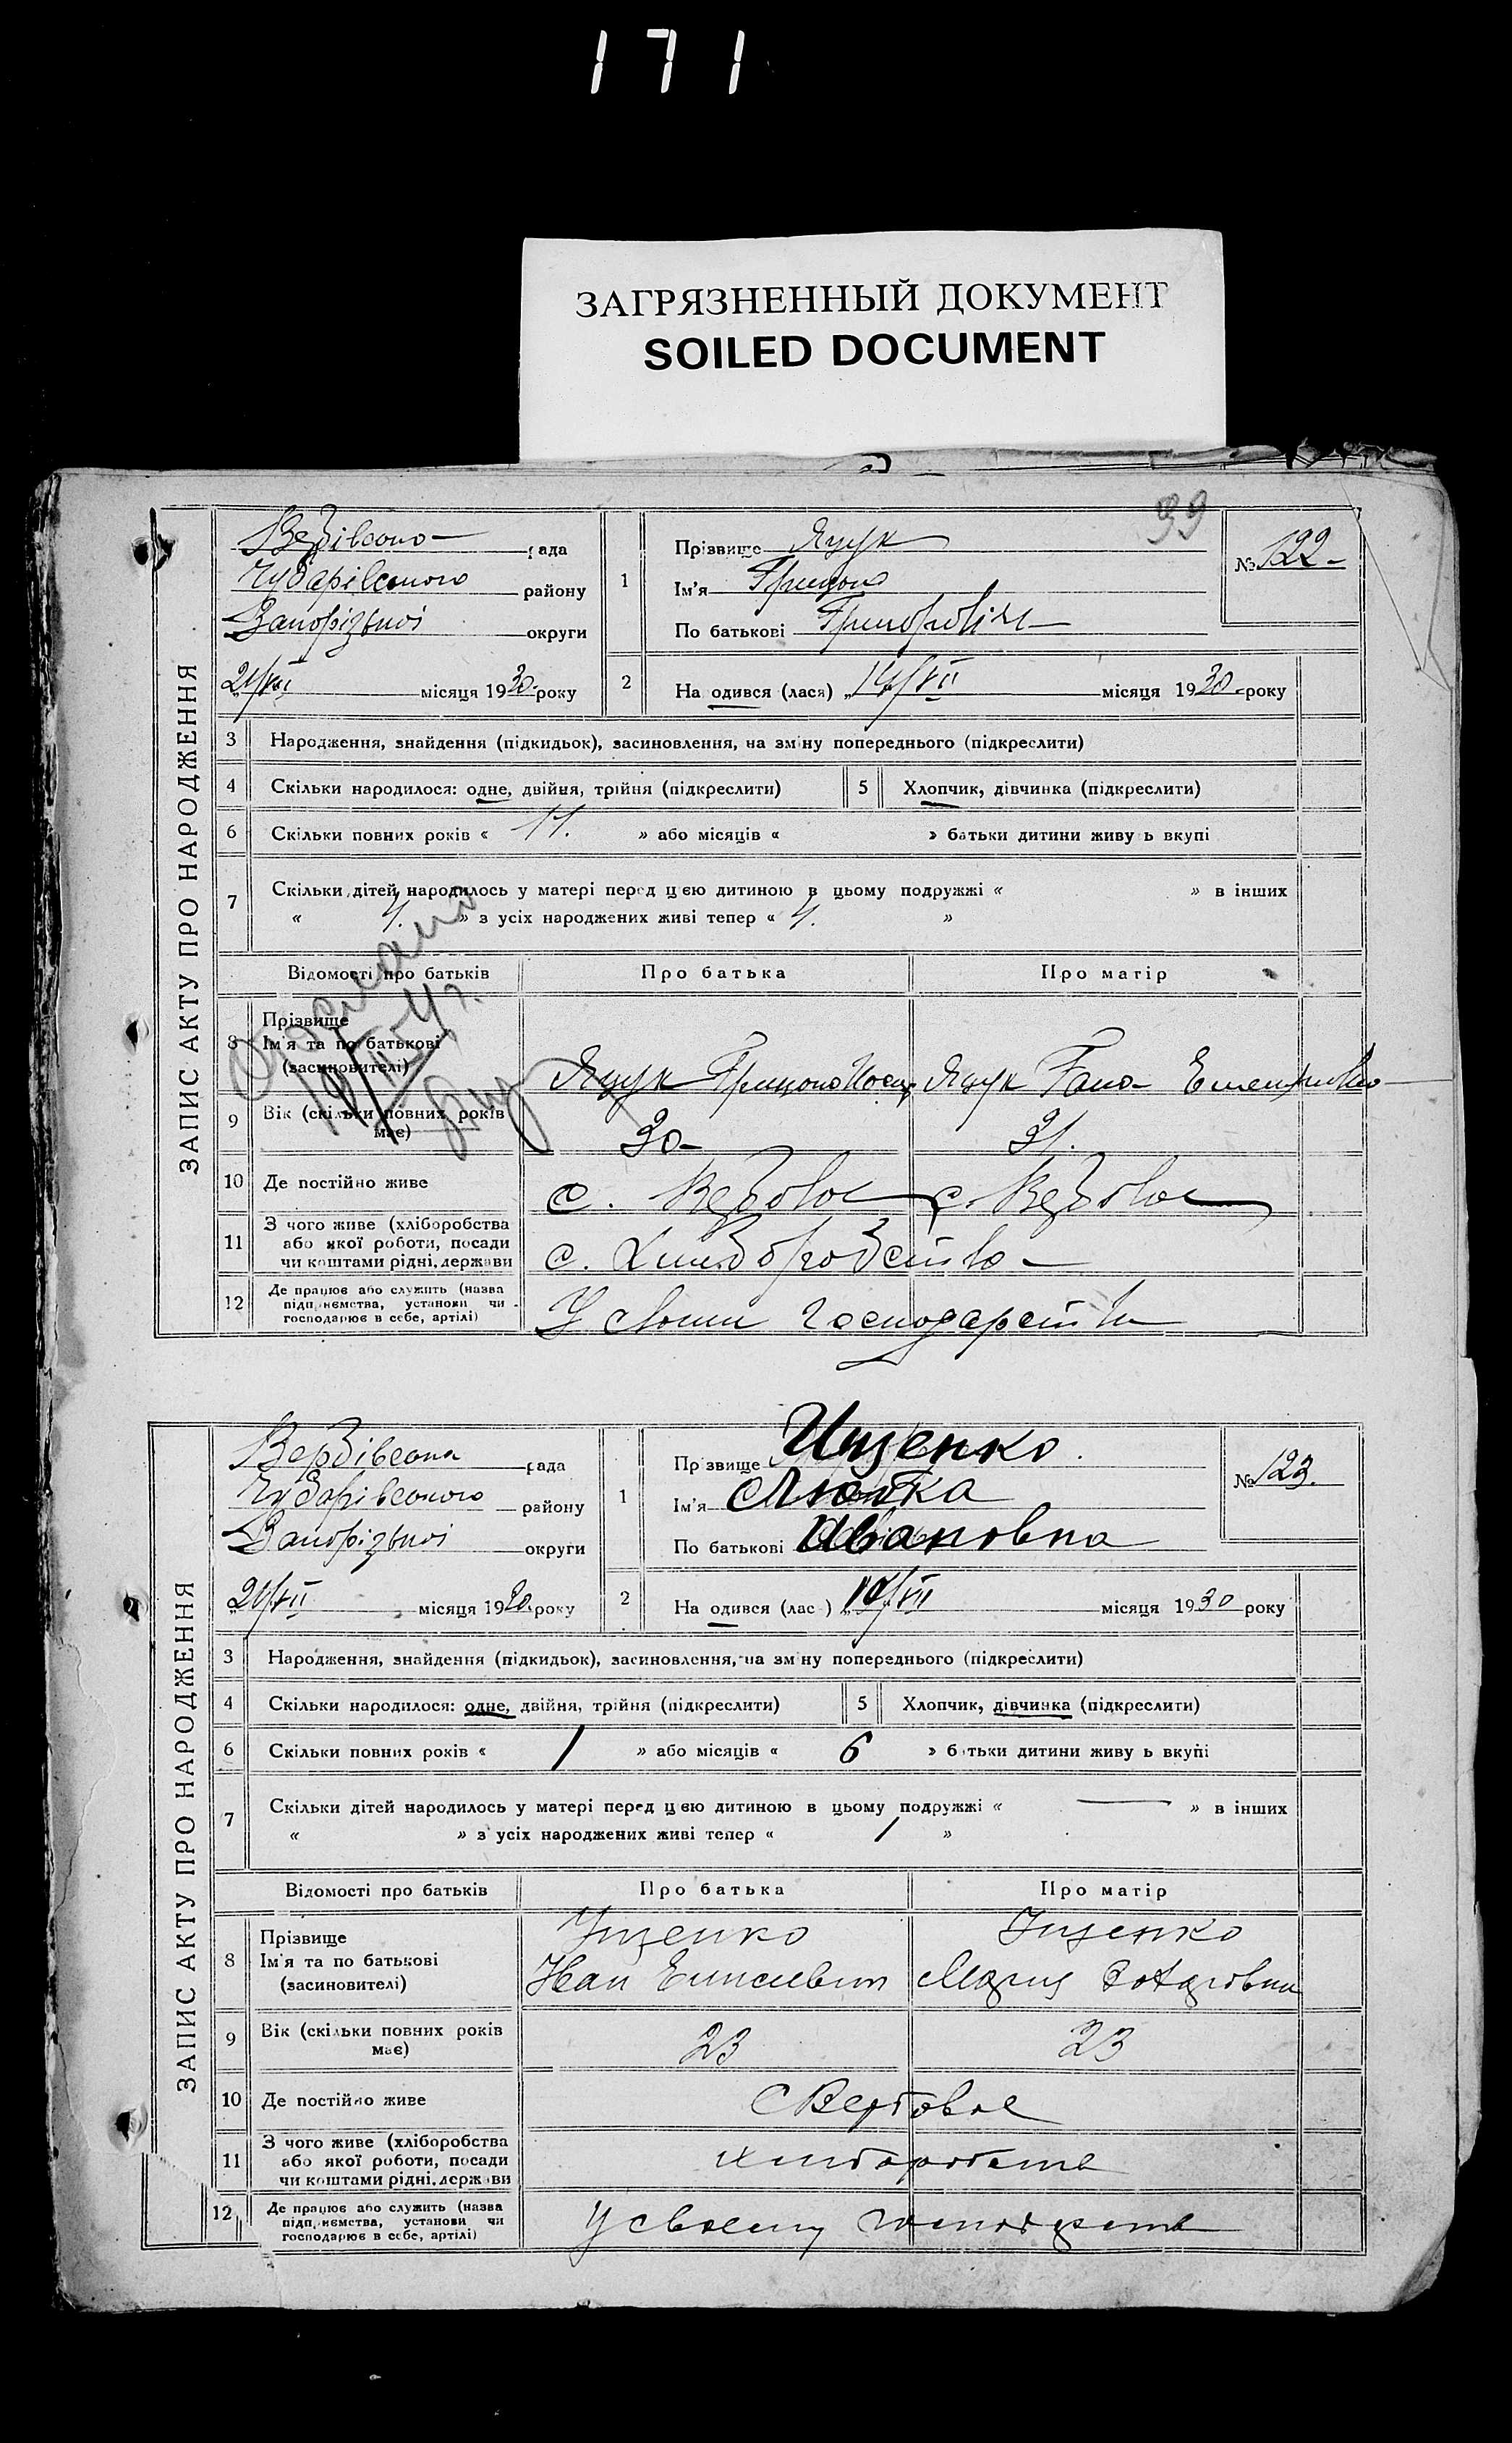 171
ЗАГРЯЗНЕННЫЙ ДОКУМЕНТ
SOILED DOCUMENT
39
ЗАПИС АКТУ ПРО НАРОДЖЕННЯ
рада
району
Запорізької округи
21/VII місяця 1930 року
1 Прізвище Яцук
Ім'я Грицько
По батькові Григорович
№ 122
2 На одився (лася) 14/VII місяця 1930 року
3 Народження, знайдення (підкидьок), засиновлення, на зміну попереднього (підкреслити)
4 Скільки народилося: одне, двійня, трійня (підкреслити)
5 Хлопчик, дівчинка (підкреслити)
6 Скільки повних років « 11. » або місяців « » батьки дитини живу ь вкупі
7 Скільки дітей народилось у матері перед цєю дитиною в цьому подружжі « » в інших
« 4. » з усіх народжених живі тепер « 4. »
Відомості про батьків Про батька Про матір
8 Прізвище
Ім'я та по батькові
(засиновителі)
Яцук Грицько Яцук
9 Вік (скільки повних років має) 30 31.
10 Де постійно живе с. Вербове с. Вербове
11 З чого живе (хліборобства
або якої роботи, посади
чи коштами рідні, держави
12 Де працює або служить (назва
підприємства, установи чи
господарює в себе, артілі)
У господарстві
ЗАПИС АКТУ ПРО НАРОДЖЕННЯ
рада
району
Запорізької округи
21/VII місяця 1930 року
1 Пр звище Ищенко
Ім'я Любка
По батькові Ивановна
№ 123.
2 На одився (лас ) 10/VII місяця 1930 року
3 Народження, знайдення (підкидьок), засиновлення, на зміну попереднього (підкреслити)
4 Скільки народилося: одне, двійня, трійня (підкреслити)
5 Хлопчик, дівчинка (підкреслити)
6 Скільки повних років « 1 » або місяців « 6 » батьки дитини живу ь вкупі
7 Скільки дітей народилось у матері перед цєю дитиною в цьому подружжі « — » в інших
« » з усіх народжених живі тепер « 1 »
Відомості про батьків Про батька Про матір
8 Прізвище
Ім'я та по батькові
(засиновителі)
Ищенко Ищенко
Иван Мария
9 Вік (скільки повних років має) 23 23
10 Де постійно живе с Вербовое
11 З чого живе (хліборобства
або якої роботи, посади
чи коштами рідні, держави
12 Де працює або служить (назва
підприємства, установи чи
господарює в себе, артілі)
У своему